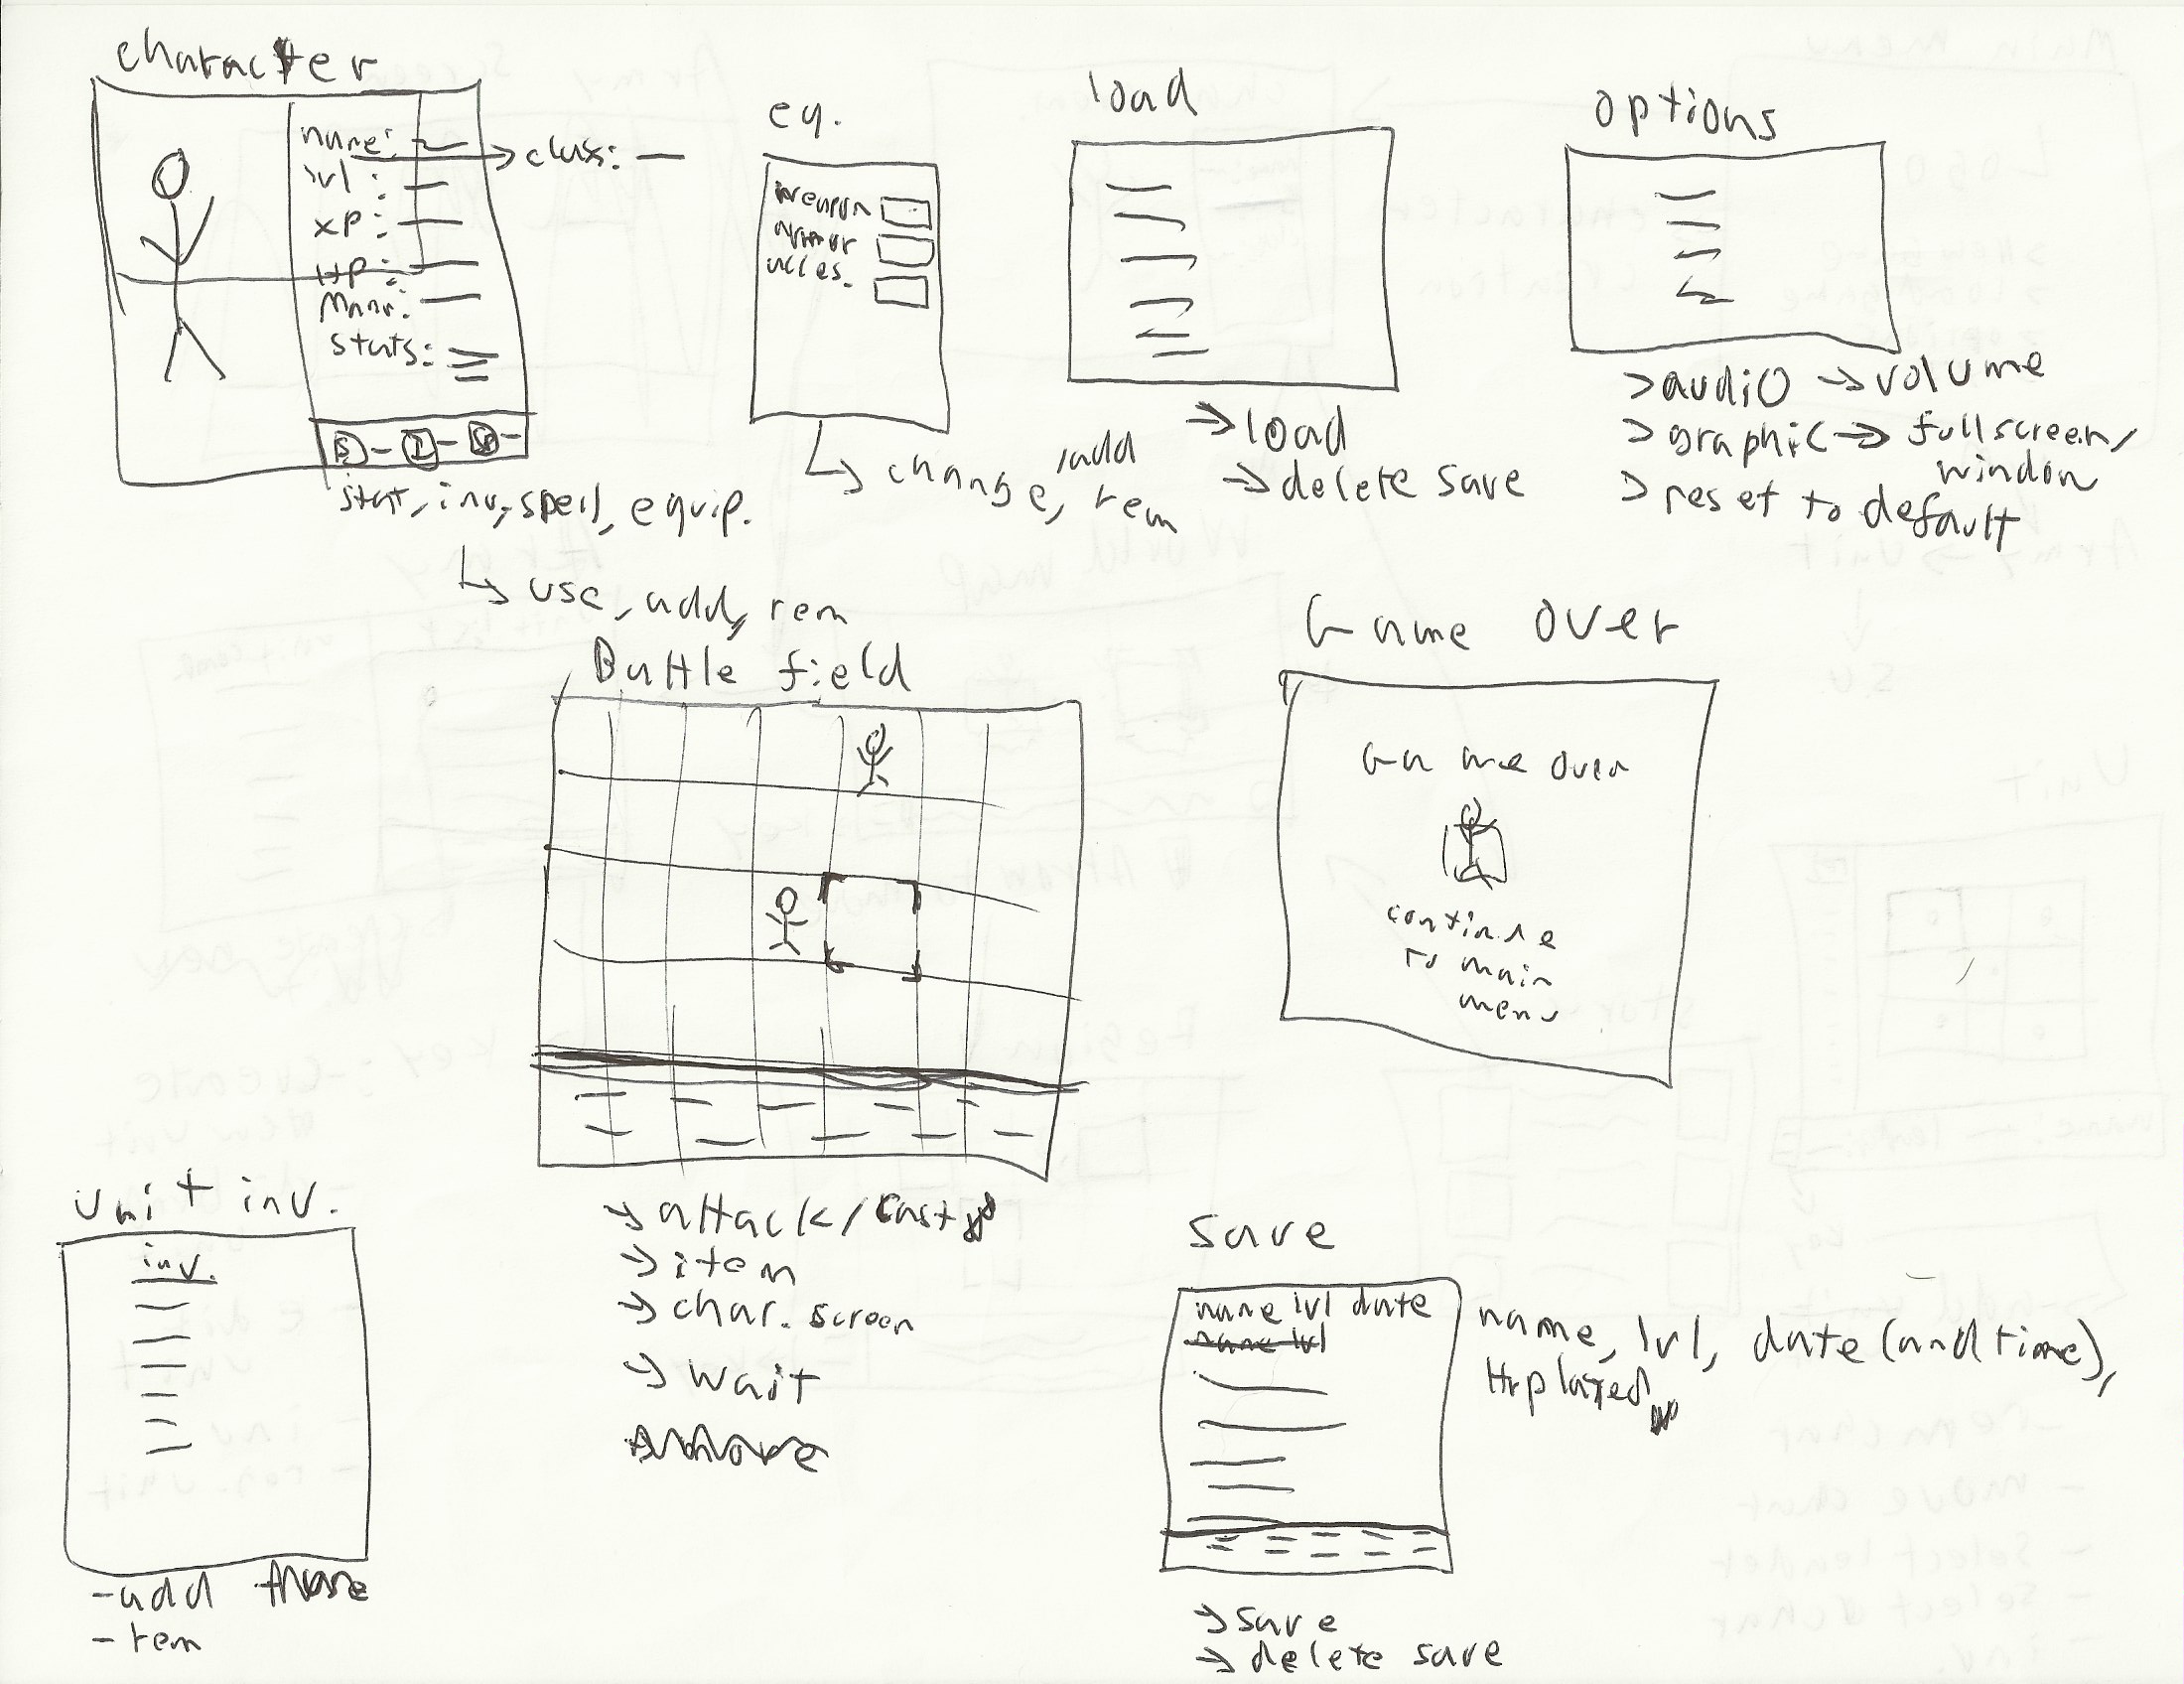 character
name:
→ class:
lvl:
xp:
HP:
Mana:
stats:
stat, inv, spell, equip.
↳ use, add, rem
eq.
weapon
armor
acces.
↳ change, /add
rem
load
→ load
→ delete save
options
> audio → volume
> graphic → fullscreen/
window
> reset to default
Battle field
→ attack/cast
→ item
→ char. screen
→ wait
Game over
Game over
continue
to main
menu
unit inv.
inv.
- add
- rem
save
name lvl date
name lvl
name, lvl, date (and time),
Hr played
→ save
→ delete save